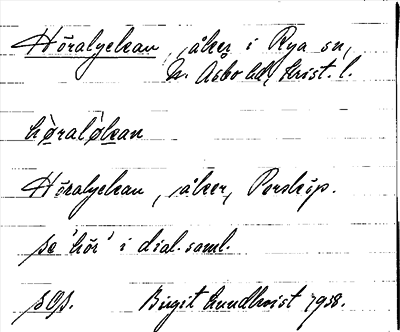 Höralyckan, åker i Rya sn,
N. Åsbo hd, Krist. l.
høraløkan
Höralyckan, åker, Perstorp.
se 'hör' i dial.saml.
sOp. Birgit Lundkvist 1958.